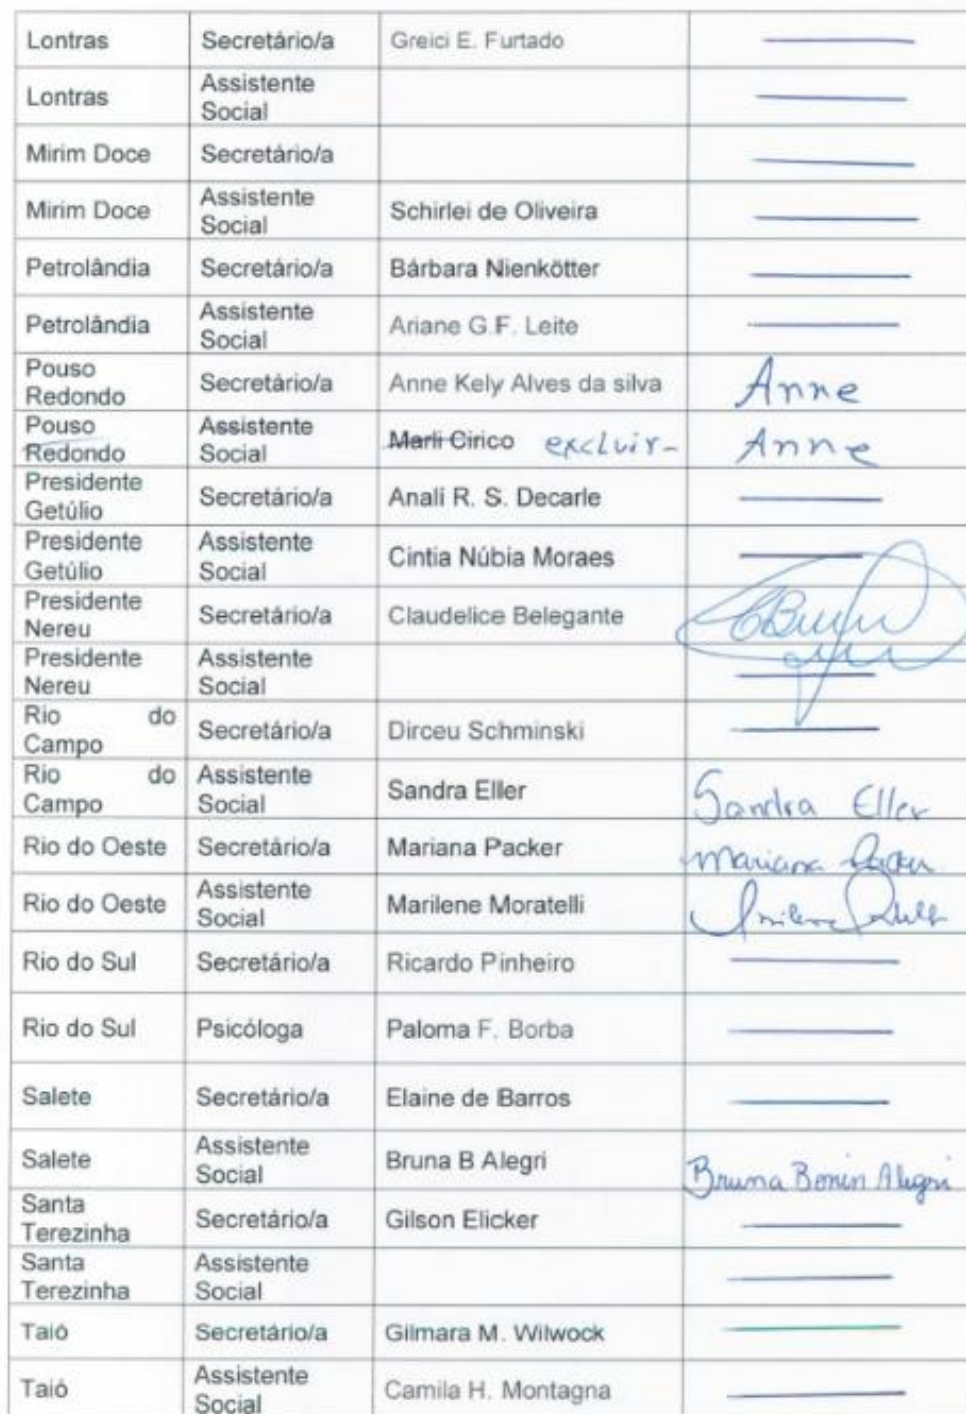 Lontras Secretário/a Greici E. Furtado
Lontras Assistente Social
Mirim Doce Secretário/a
Mirim Doce Assistente Social Schirlei de Oliveira
Petrolândia Secretário/a Bárbara Nienkötter
Petrolândia Assistente Social Ariane G.F. Leite
Pouso Redondo Secretário/a Anne Kely Alves da silva Anne
Pouso Redondo Assistente Social Marli Cirico excluir- Anne
Presidente Getúlio Secretário/a Anali R. S. Decarle
Presidente Getúlio Assistente Social Cintia Núbia Moraes
Presidente Nereu Secretário/a Claudelice Belegante
Presidente Nereu Assistente Social
Rio do Campo Secretário/a Dirceu Schminski
Rio do Campo Assistente Social Sandra Eller Sandra Eller
Rio do Oeste Secretário/a Mariana Packer Mariana Packer
Rio do Oeste Assistente Social Marilene Moratelli
Rio do Sul Secretário/a Ricardo Pinheiro
Rio do Sul Psicóloga Paloma F. Borba
Salete Secretário/a Elaine de Barros
Salete Assistente Social Bruna B Alegri Bruna Bonin Alegri
Santa Terezinha Secretário/a Gilson Elicker
Santa Terezinha Assistente Social
Taió Secretário/a Gilmara M. Wilwock
Taió Assistente Social Camila H. Montagna